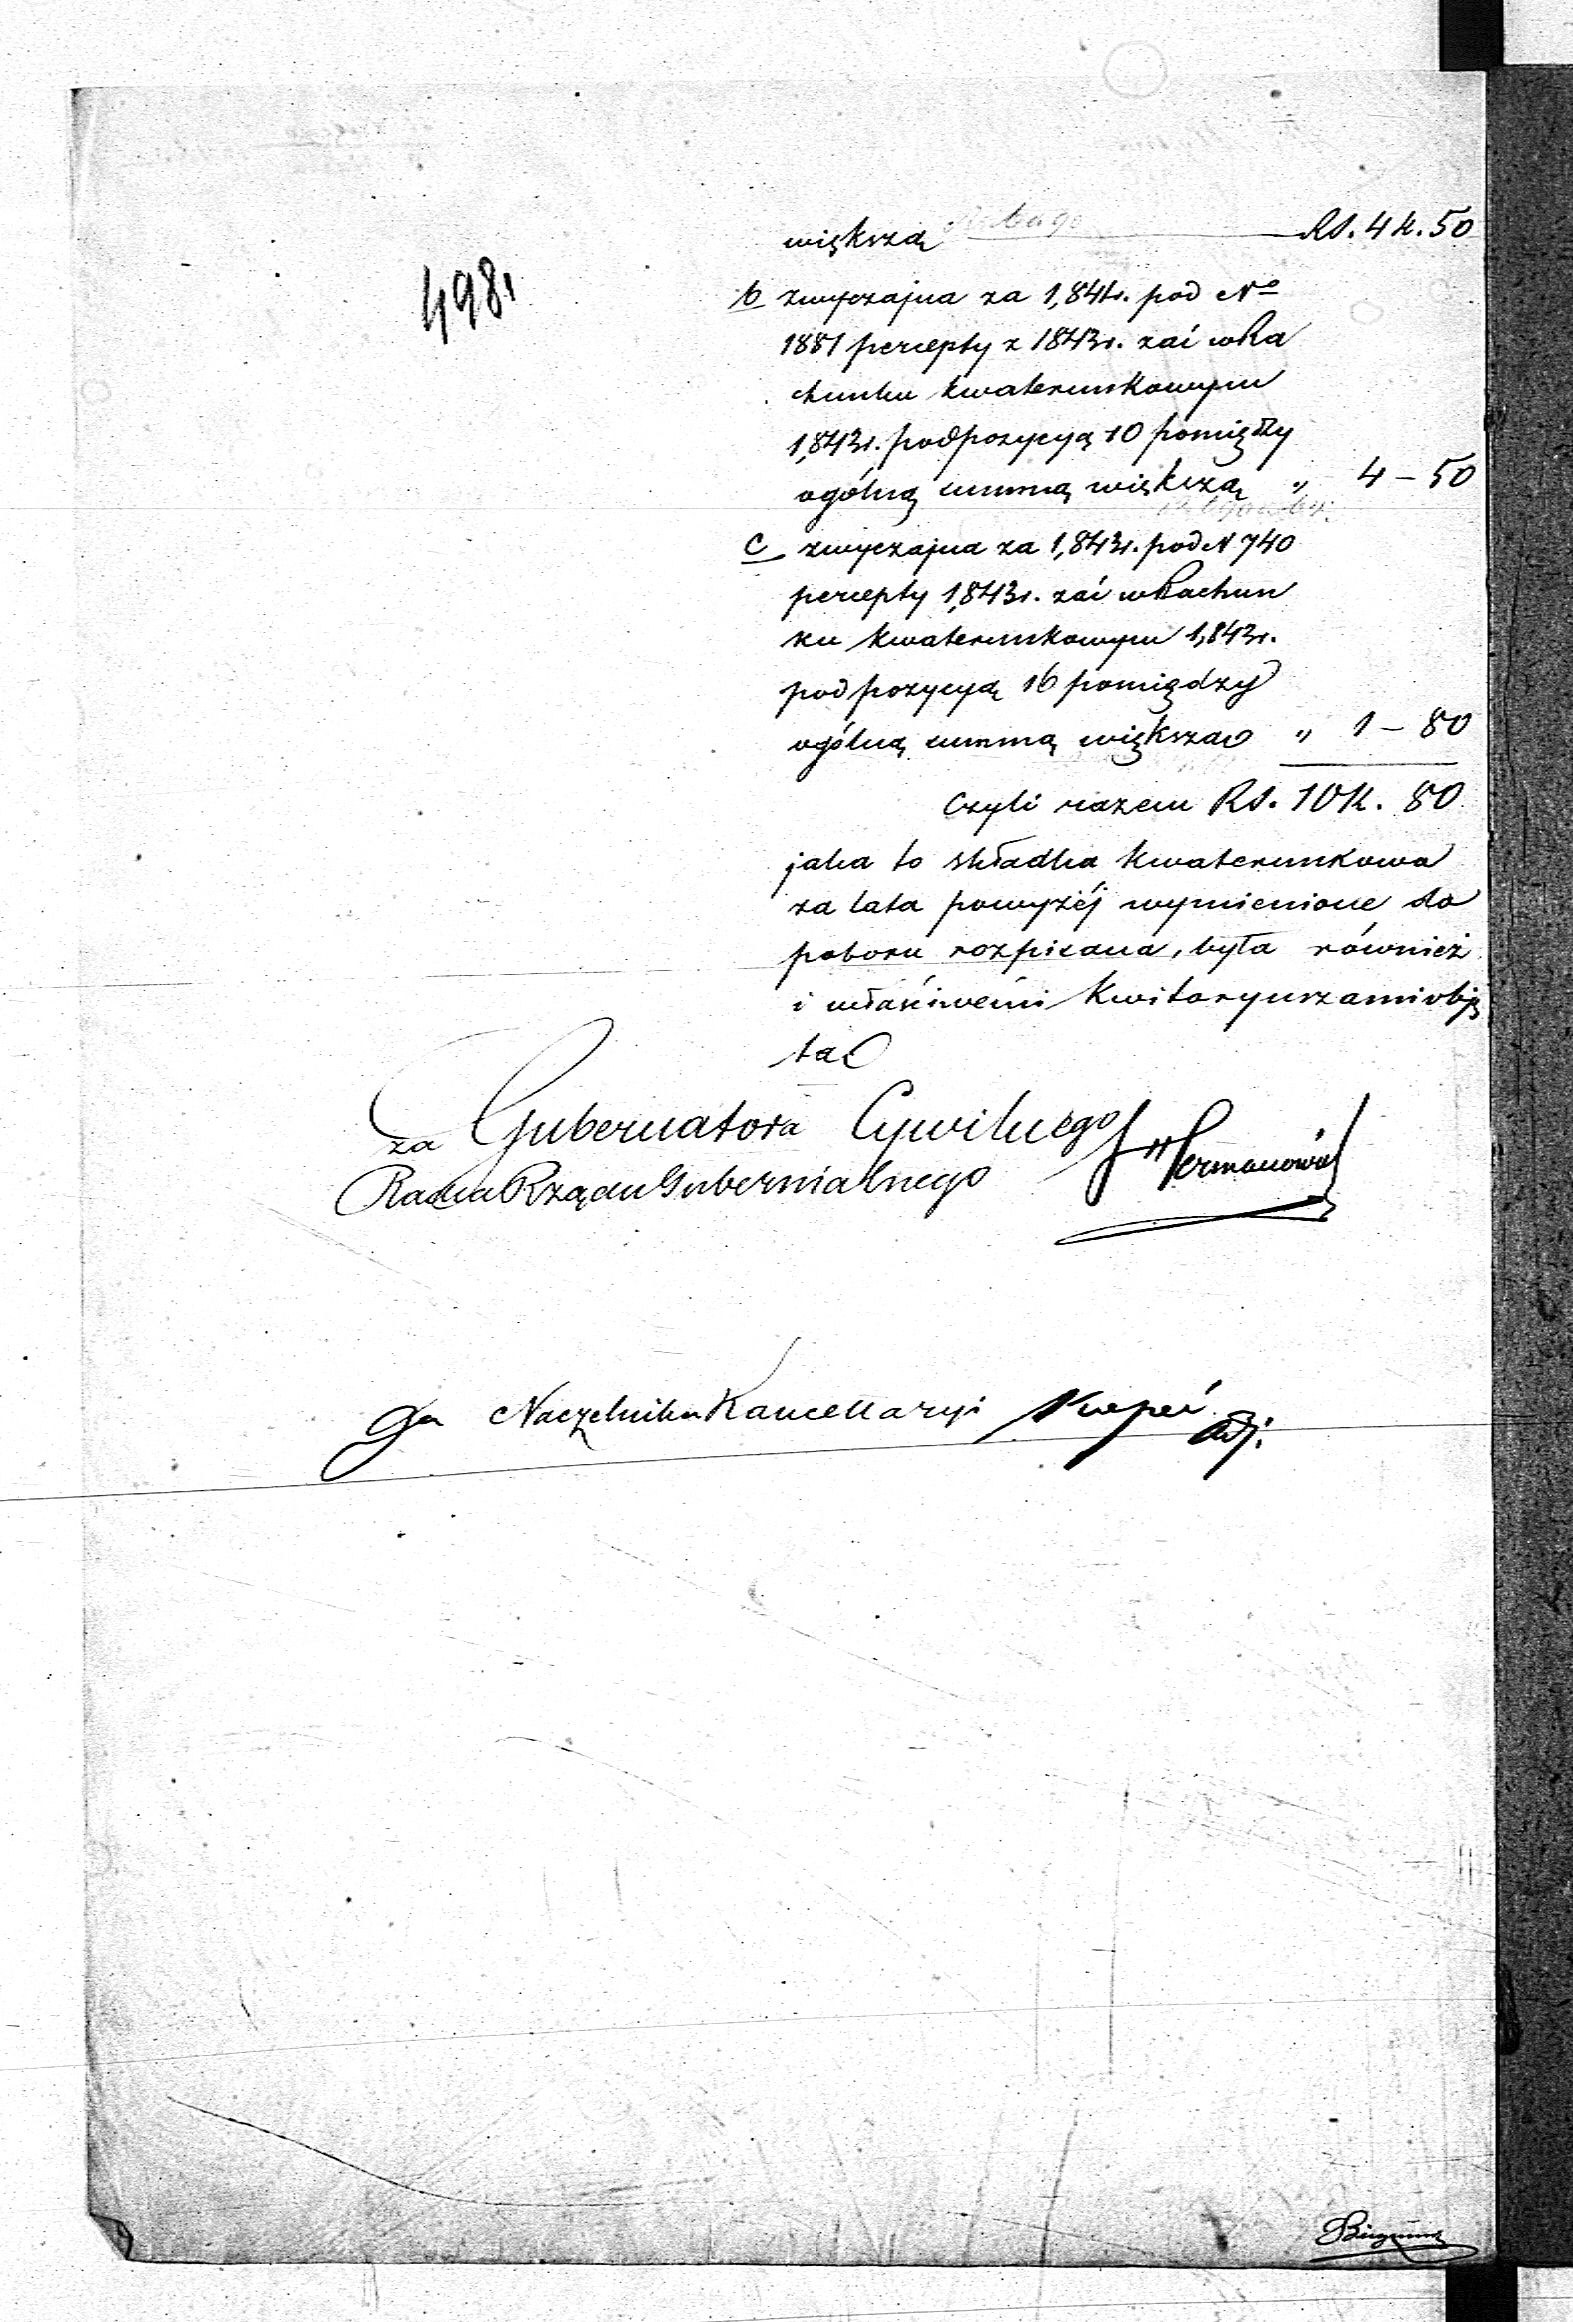 498.
większą Rs. 4 k. 50
b zwyczajna za 1,841r. pod No
1881 percepty z 1843r. zaś w Ra
chunku kwaterunkowym
1,843r. pod pozycyą 10 pomiędzy
ogólną summą większą " 4 – 50
c zwyczajna za 1,843r. pod N 740
percepty 1,843r. zaś w Rachun
ku kwaterunkowym 1,843r.
pod pozycyą 16 pomiędzy
ogólną summą większą " 1 – 80
Czyli razem Rs. 10 k. 80
jaka to składka kwaterunkowa
za lata powyżéj wymienione do
poboru rozpisana, była również
i właściwemi kwitaryuszami obję
tą
za Gubernatora Cywilnego
Radca Rządu Gubernialnego J Hermanowicz
za Naczelnika Kancellaryi